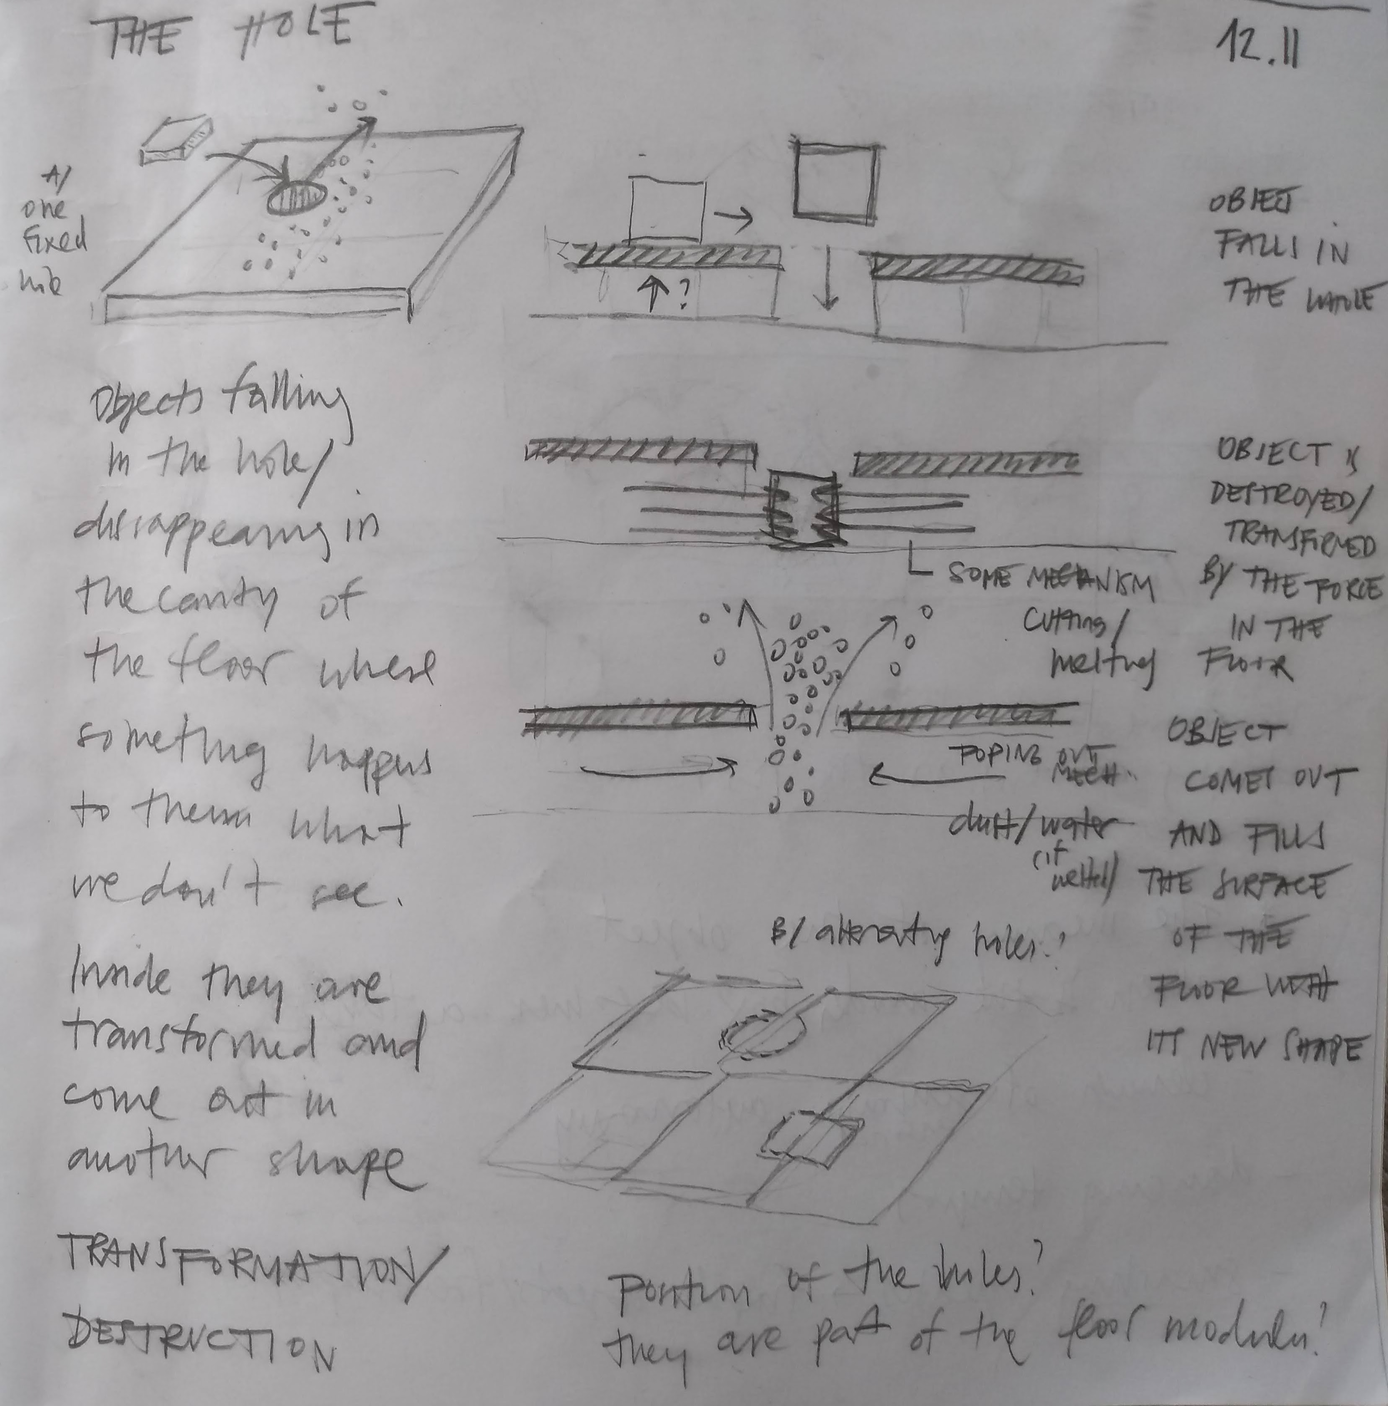 THE HOLE
12.11
A/
one
fixed
hole
OBJECT
FALLS IN
THE WHOLE
?
Objects falling
in the hole/
disappearing in
the cavity of
the floor where
something happens
to them what
we don't see.
Inside they are
transformed and
come out in
another shape
TRANSFORMATION/
DESTRUCTION
OBJECT IS
DESTROYED/
TRANSFIRMED
BY THE FORCE
IN THE
FLOOR
SOME MECHANISM
cutting/
melting
POPING OUT
MECH.
dust/water
(if
melted)
OBJECT
COMES OUT
AND FILLS
THE SURFACE
OF THE
FLOOR WITH
ITS NEW SHAPE
B/ alternating holes?
Position of the holes?
they are part of the floor modules?